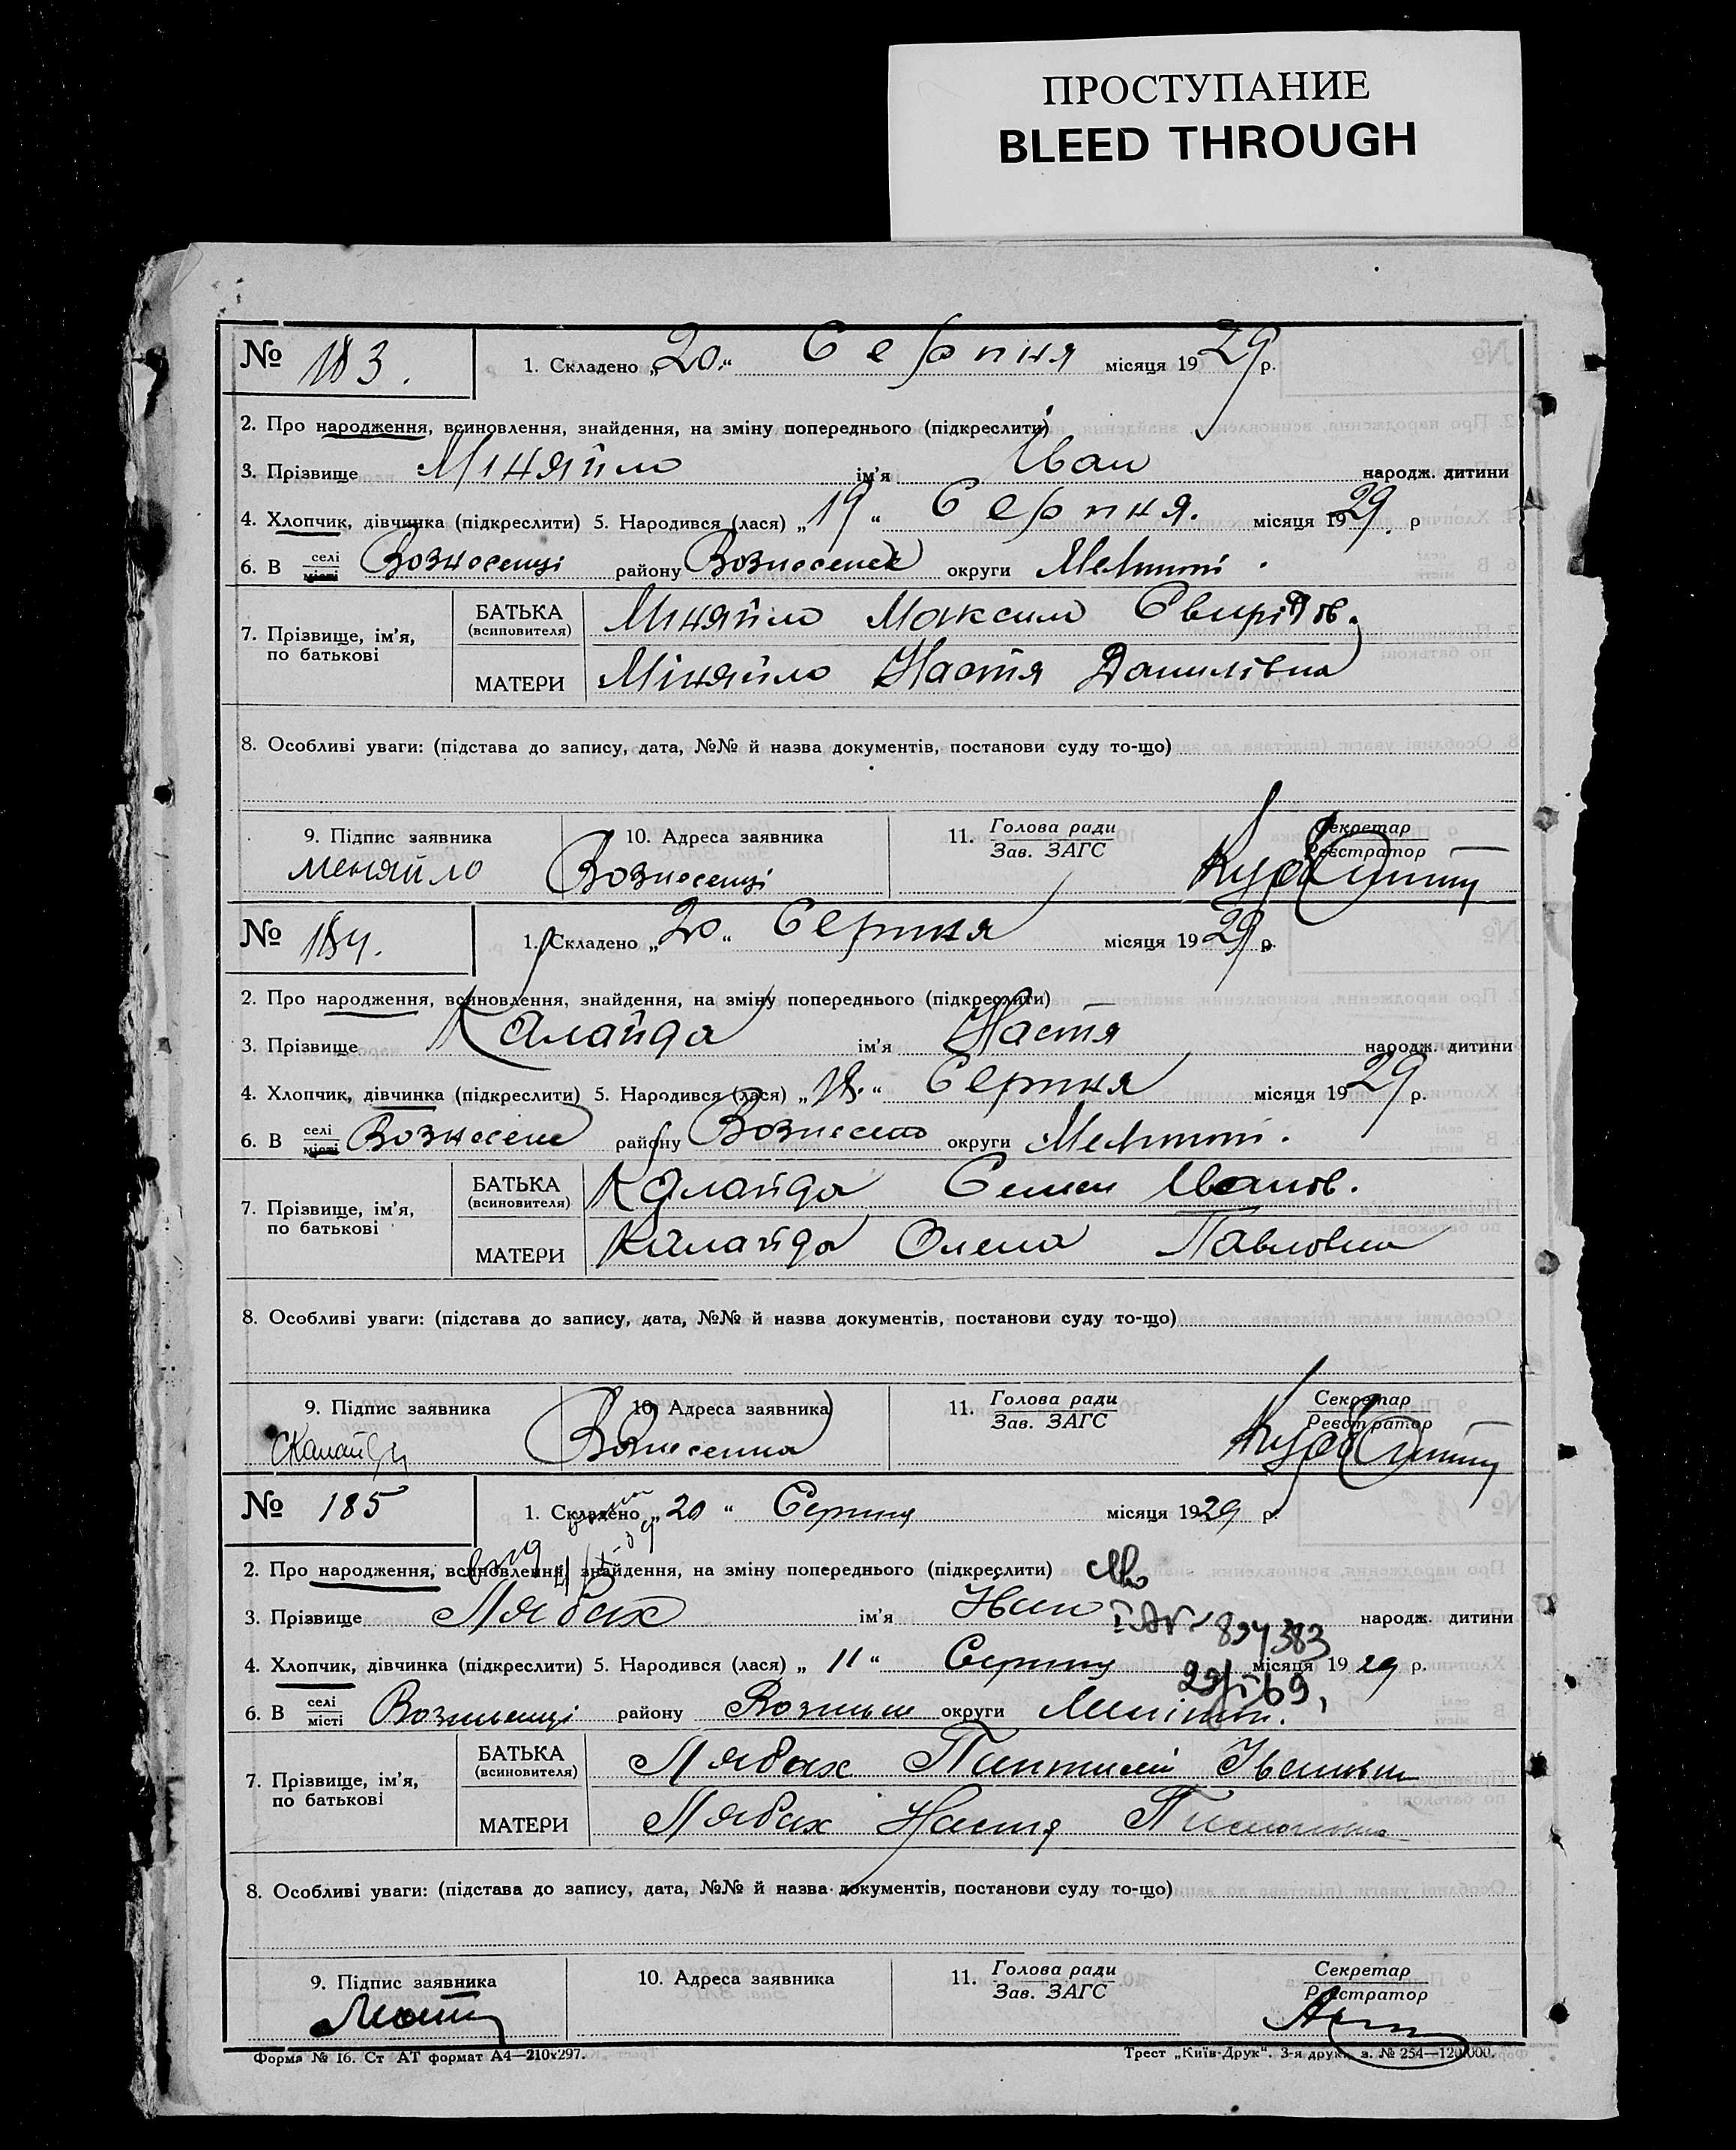 ПРОСТУПАНИЕ
BLEED THROUGH
№ 183. 1. Складено „20.“ Серпня місяця 1929 р.
2. Про народження, всиновлення, знайдення, на зміну попереднього (підкреслити)
3. Прізвище Міняйло ім’я Іван народж. дитини
4. Хлопчик, дівчинка (підкреслити) 5. Народився (лася) „19“ Серпня. місяця 1929. р
6. В селі місті Вознесенці району Вознесенск округи Меліт.
7. Прізвище, ім’я, по батькові
БАТЬКА (всиновителя) Міняйло Максим Свирідов.
МАТЕРИ Міняйло Настя Данилівна
8. Особливі уваги: (підстава до запису, дата, №№ й назва документів, постанови суду то-що)
9. Підпис заявника 10. Адреса заявника 11. Голова ради Зав. ЗАГС Секретар Реєстратор
Меняйло Вознесенці
№ 184. 1. Складено „20“ Серпня місяця 1929 р.
2. Про народження, всиновлення, знайдення, на зміну попереднього (підкреслити)
3. Прізвище Калайда ім’я Настя народж. дитини
4. Хлопчик, дівчинка (підкреслити) 5. Народився (лася) „18.“ Серпня місяця 1929 р.
6. В селі місті Вознесене району округи Меліт.
7. Прізвище, ім’я, по батькові
БАТЬКА (всиновителя) Калайда Семен Іванов.
МАТЕРИ Калайда Олена Павловна
8. Особливі уваги: (підстава до запису, дата, №№ й назва документів, постанови суду то-що)
9. Підпис заявника 10. Адреса заявника 11. Голова ради Зав. ЗАГС Секретар Реєстратор
СКалайда Вознесенка
№ 185 1. Складено „20“ Серпня місяця 1929 р.
2. Про народження, всиновлення, знайдення, на зміну попереднього (підкреслити)
3. Прізвище Лябах ім’я Іван народж. дитини
834383
4. Хлопчик, дівчинка (підкреслити) 5. Народився (лася) „11“ Серпня місяця 1929 р.
6. В селі місті Вознесенці району округи
7. Прізвище, ім’я, по батькові
БАТЬКА (всиновителя) Лябах Пантилей Іванович
МАТЕРИ Лябах Настя
8. Особливі уваги: (підстава до запису, дата, №№ й назва документів, постанови суду то-що)
9. Підпис заявника 10. Адреса заявника 11. Голова ради Зав. ЗАГС Секретар Реєстратор
Форма № 16. Ст АТ формат А4—210х297. Трест „Київ-Друк“. 3-я друк., з. № 254—120.000.